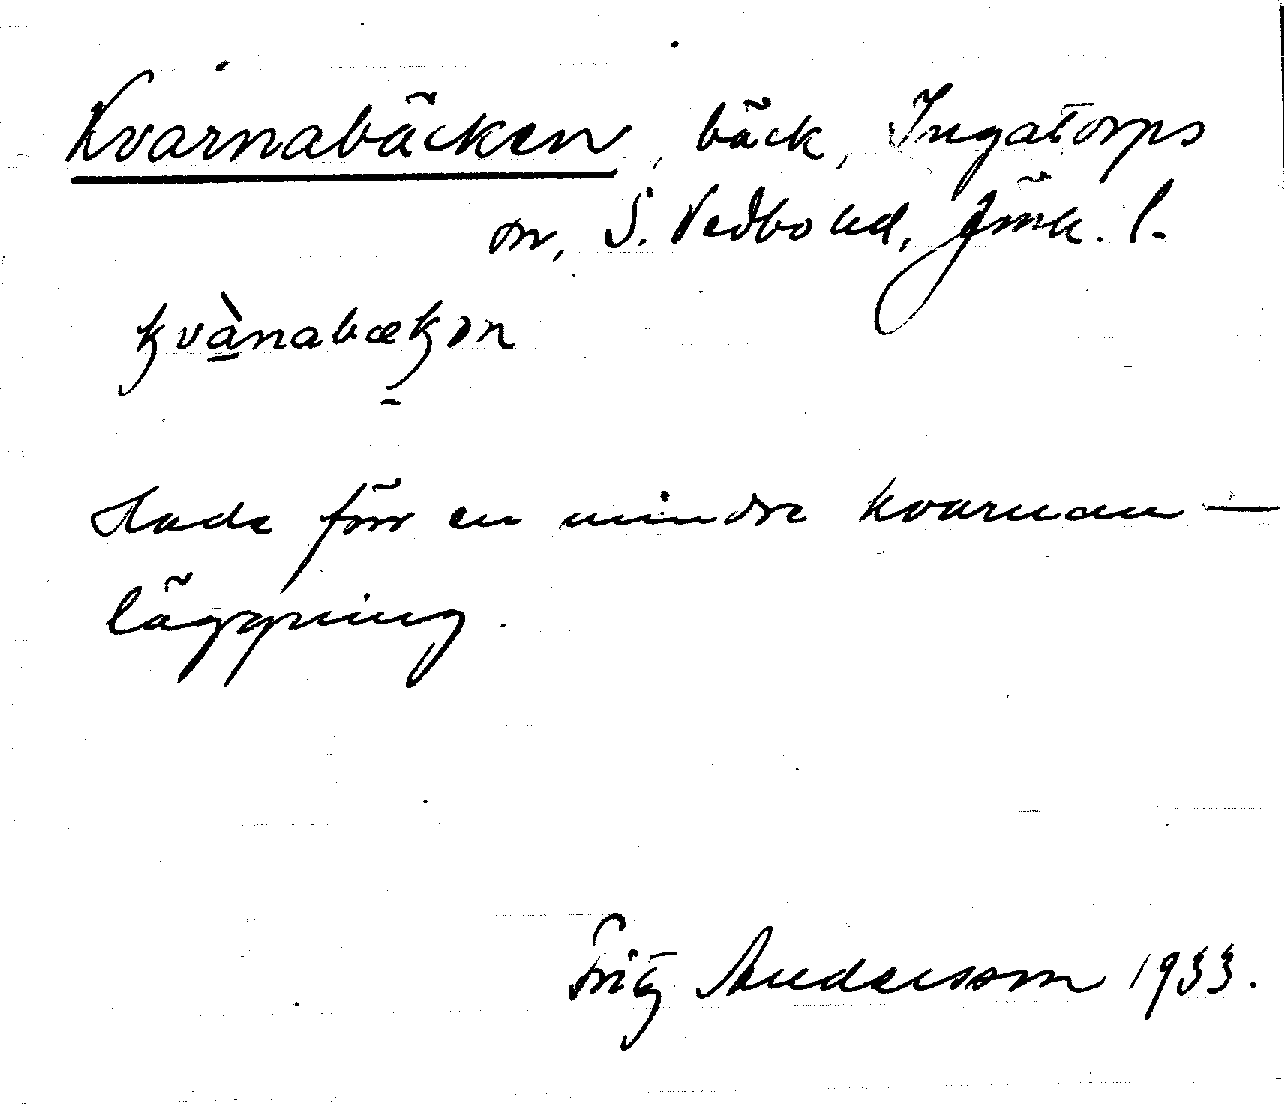 Kvarnabäcken, bäck, Ingatorps
sn, S. Vedbo hd, Jönk. l.
kvànabækən
Hade förr en mindre kvarnan-
läggning.
Fritz Andersson 1933.